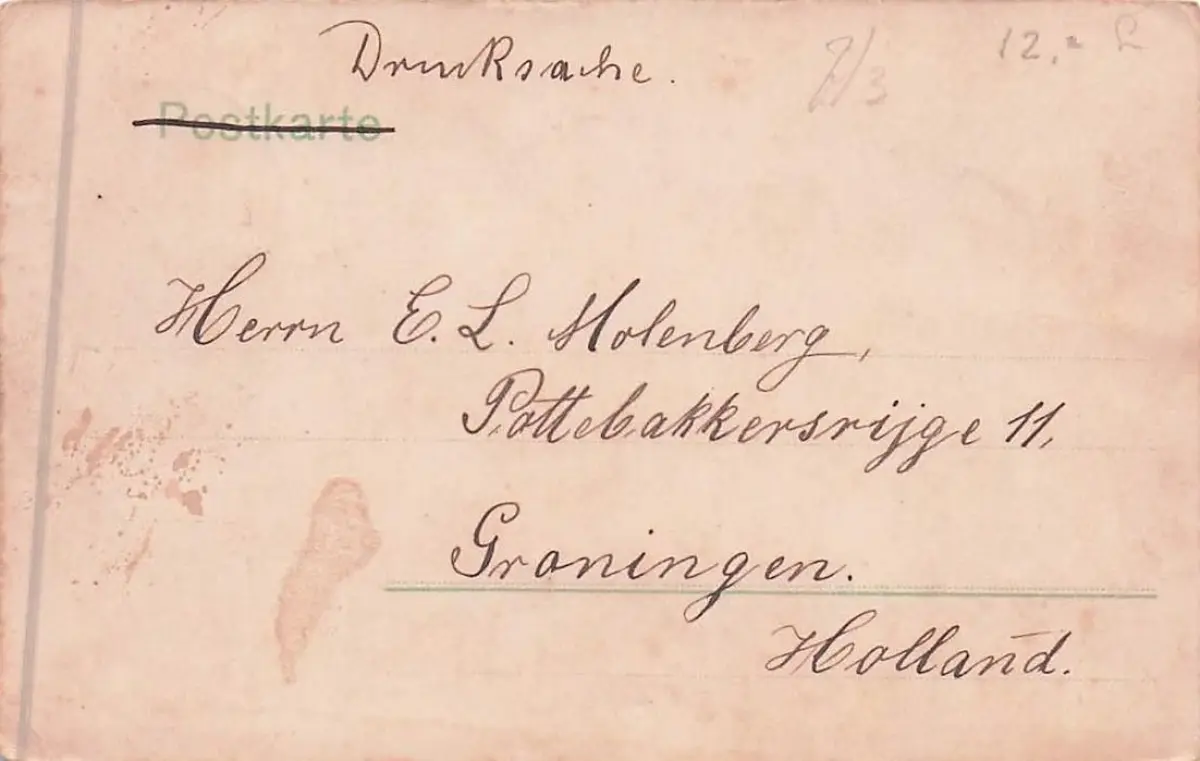 Drucksache.
12.- L
7/3
Postkarte
Herrn E. L. Molenberg,
Pottebakkersrijge 11.
Groningen.
Holland.